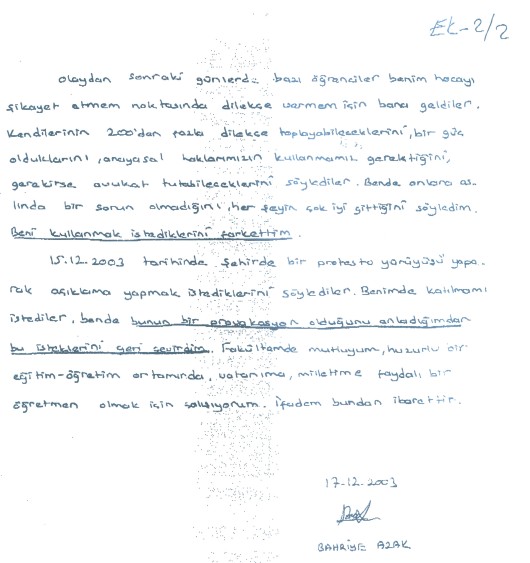 EK-2/2
Olaydan sonraki günlerde bazı öğrenciler benim hocayı
şikayet etmem noktasında dilekçe vermem için bana geldiler.
Kendilerinin 200'dan fazla dilekçe toplayabileceklerini, bir güç
olduklarını, anayasal haklarımızın kullanmamız gerektiğini,
gerekirse avukat tutabileceklerini söylediler. Bende onlara as-
lında bir sorun olmadığını, her şeyin çok iyi gittiğini söyledim.
Beni kullanmak istediklerini farkettim.
15.12.2003 tarihinde şehirde bir protesto yürüyüşü yapa-
rak açıklama yapmak istediklerini söylediler. Benimde katılmamı
istediler, bende bunun bir provakasyon olduğunu anladığımdan
bu isteklerini geri çevirdim. Fakültemde mutluyum, huzurlu bir
eğitim-öğretim ortamında, vatanıma, milletime faydalı bir
öğretmen olmak için çalışıyorum. İfadem bundan ibarettir.
17-12-2003
BAHRİYE AZAK